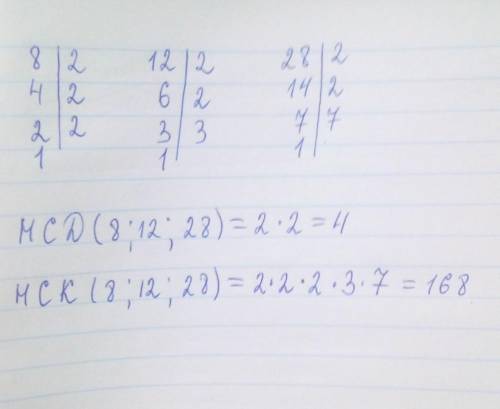 8 | 2 12 | 2 28 | 2
4 | 2 6 | 2 14 | 2
2 | 2 3 | 3 7 | 7
1 | 1 | 1 |
НСД (8; 12; 28) = 2 · 2 = 4
НСК (8; 12; 28) = 2 · 2 · 2 · 3 · 7 = 168